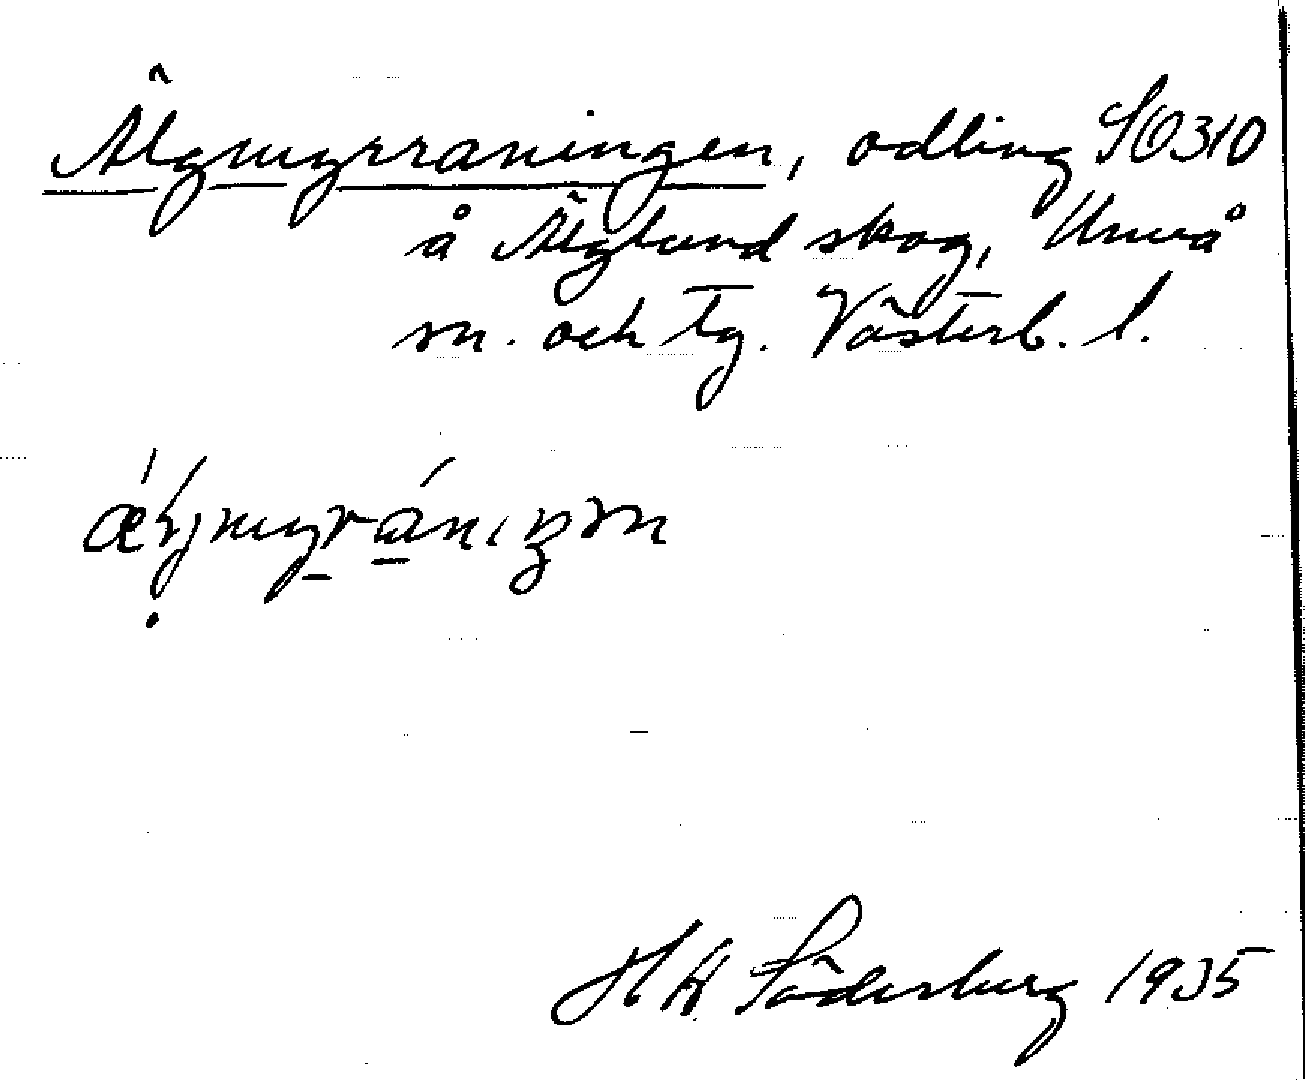 Älgmyrraningen, odling SO310
å Älglund skog, Umeå
sn. och tg. Västerb. l.
H W Söderberg 1935